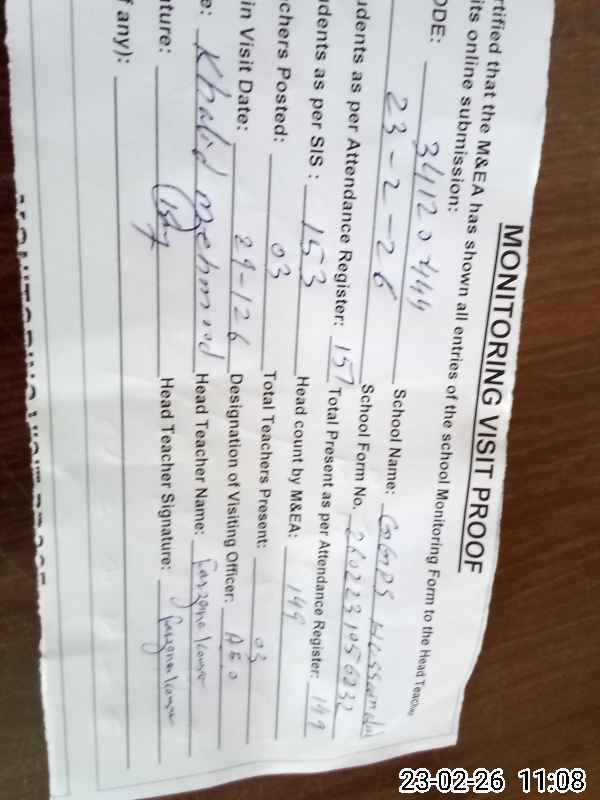 MONITORING VISIT PROOF
rtified that the M&EA has shown all entries of the school Monitoring Form to the Head Teacher
its online submission:
ODE: 34120444 School Name: GGPS
23-2-26 School Form No. 2602231056232
udents as per Attendance Register: 157 Total Present as per Attendance Register: 149
udents as per SIS : 153 Head count by M&EA: 149
achers Posted: 03 Total Teachers Present: 03
in Visit Date: 29-126 Designation of Visiting Officer: AEO
e: Khalid Mehmood Head Teacher Name:
ature: Head Teacher Signature:
f any):
23-02-26 11:08